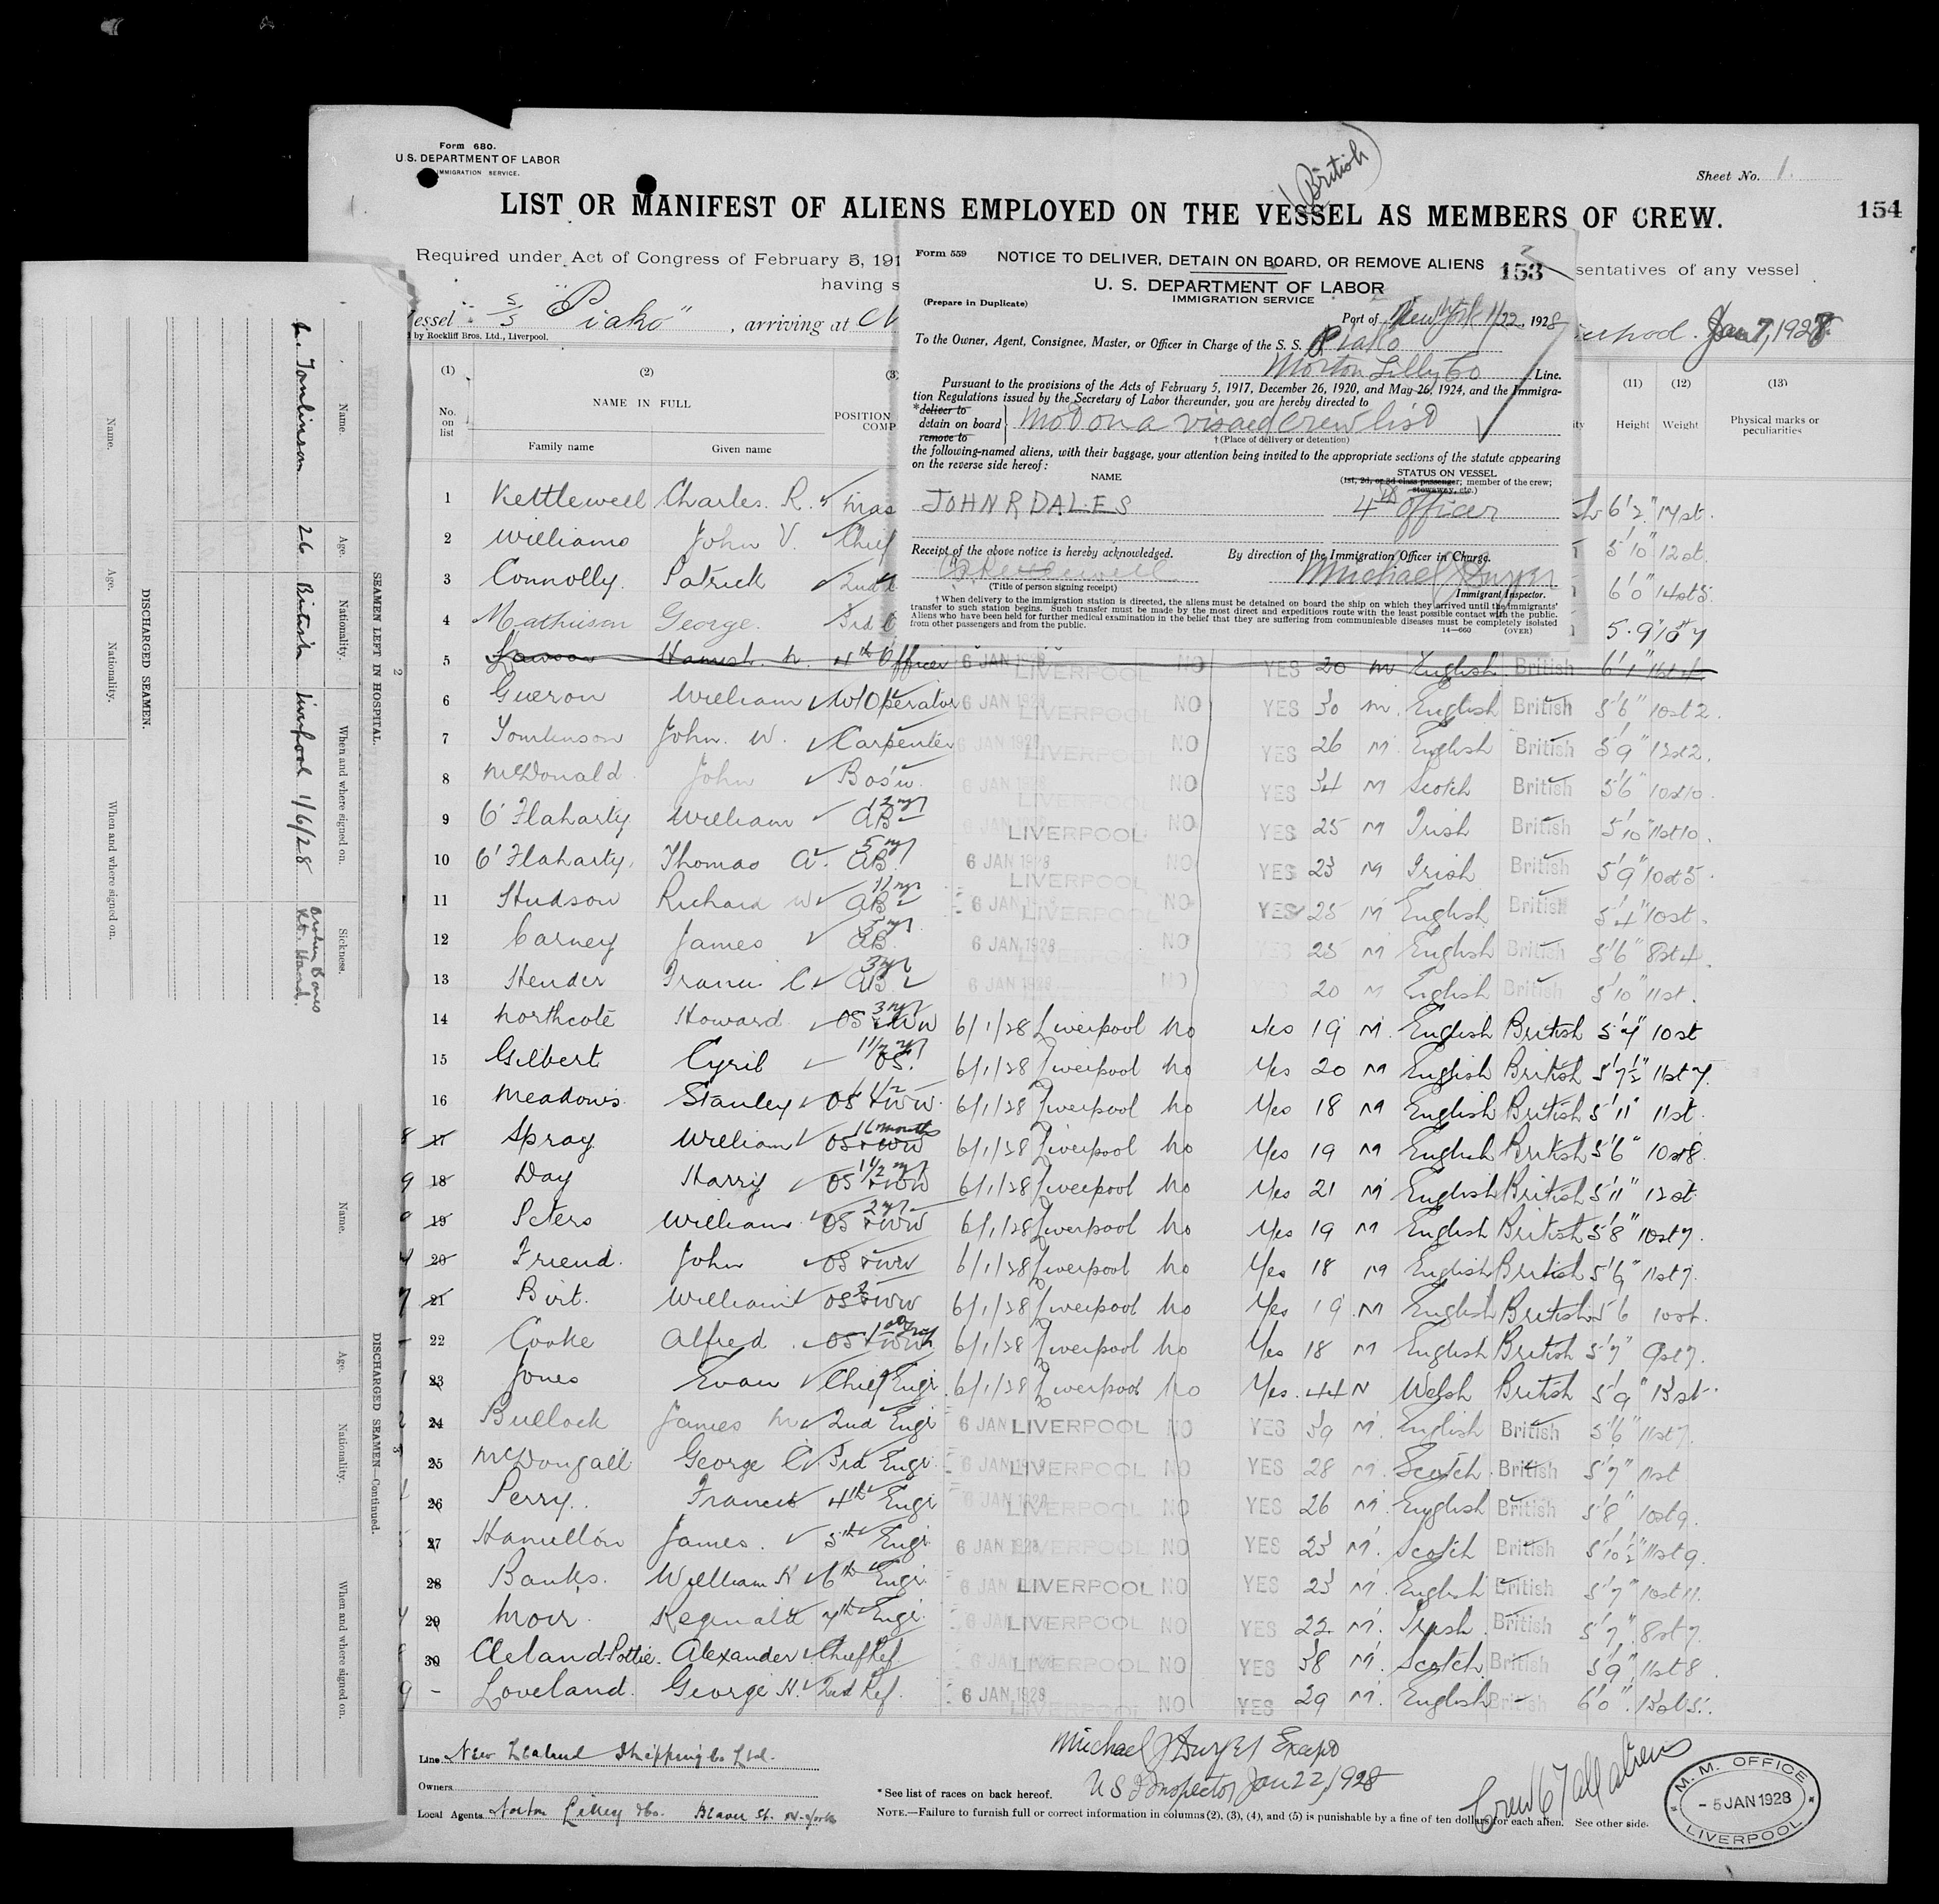 Form 680.
U.S. DEPARTMENT OF LABOR
IMMIGRATION SERVICE.
(British)
Sheet No. 1.
LIST OR MANIFEST OF ALIENS EMPLOYED ON THE VESSEL AS MEMBERS OF CREW.
154
Required under Act of Congress of February 5, 191
sentatives of any vessel
having s
essel S/S "Piako", arriving at
Jan 7, 1928
by Rockliff Bros. Ltd., Liverpool.
(1) (2) (3 (11) (12) (13)
No. on list
NAME IN FULL
Family name Given name
POSITION
COMP
Height Weight Physical marks or peculiarities
Form 559 NOTICE TO DELIVER, DETAIN ON BOARD, OR REMOVE ALIENS 153
U. S. DEPARTMENT OF LABOR
(Prepare in Duplicate) IMMIGRATION SERVICE
Port of New York 1/22, 1928
To the Owner, Agent, Consignee, Master, or Officer in Charge of the S. S. Piako
Norton Lilly Co Line.
Pursuant to the provisions of the Acts of February 5, 1917, December 26, 1920, and May 26, 1924, and the Immigra-
tion Regulations issued by the Secretary of Labor thereunder, you are hereby directed to
*deliver to
detain on board
remove to
Not on a visaed crew list
†(Place of delivery or detention)
the following-named aliens, with their baggage, your attention being invited to the appropriate sections of the statute appearing
on the reverse side hereof:
NAME STATUS ON VESSEL
(1st, 2d, or 3d class passenger; member of the crew;
stowaway, etc.)
JOHN R DALES 4th Officer
Receipt of the above notice is hereby acknowledged. By direction of the Immigration Officer in Charge.
Michael J Dwyer
(Title of person signing receipt) Immigrant Inspector.
† When delivery to the immigration station is directed, the aliens must be detained on board the ship on which they arrived until the immigrants'
transfer to such station begins. Such transfer must be made by the most direct and expeditious route with the least possible contact with the public.
Aliens who have been held for further medical examination in the belief that they are suffering from communicable diseases must be completely isolated
from other passengers and from the public. 14—660 (OVER)
1 Kettlewell Charles. R. Mas 6'2" 17st.
2 Williams John V. Chief 5'10" 12st.
3 Connolly. Patrick 2nd 6'0" 14st5.
4 Mathieson George. 3rd 5.9"
5 Lawson 4th Officer 6 JAN 1928 LIVERPOOL NO YES 20 M English British 6'1"
6 Gueron William W/Operator 6 JAN 1928 LIVERPOOL NO YES 30 M. English British 5'6" 10st2.
7 Tomlinson John. W. Carpenter 6 JAN 1928 LIVERPOOL NO YES 26 M English British 5'9" 12st2.
8 McDonald John Bos'n. 6 JAN 1928 LIVERPOOL NO YES 34 M Scotch British 5'6" 10st10.
9 O'Flaharty William AB LIVERPOOL NO YES 25 M Irish British 5'10" 11st10.
10 O'Flaharty. Thomas A. AB 6 JAN 1928 LIVERPOOL NO YES 23 M Irish British 5'9" 10st5.
11 Hudson Richard W AB 6 JAN 1928 LIVERPOOL NO YES 25 M English British 5'4" 10st.
12 Carney James AB. 6 JAN 1928 NO YES 25 M English British 5'6" 8st4.
13 Hender Francis C. AB 6 JAN 1928 NO 20 M English British 5'10" 11st.
14 Northcote Howard OS + WW 6/1/28 Liverpool No Yes 19 M. English British 5'7" 10st
15 Gilbert Cyril OS. 6/1/28 Liverpool No Yes 20 M English British 5'7½" 11st7.
16 Meadows Stanley OS + WW. 6/1/28 Liverpool No Yes 18 M English British 5'11" 11st.
17 Spray William OS + WW 16 months 6/1/28 Liverpool No Yes 19 M English British 5'6" 10st8.
18 Day Harry OS + WW 6/1/28 Liverpool No Yes 21 M English British 5'11" 12st.
19 Peters William OS + WW 6/1/28 Liverpool No Yes 19 M English British 5'8" 10st7.
20 Friend. John OS + WW 6/1/28 Liverpool No Yes 18 M English British 5'6" 11st7.
21 Birt. William OS + WW 6/1/28 Liverpool No Yes 19 M English British 5'6 10st.
22 Cooke Alfred OS + WW 6/1/28 Liverpool No Yes 18 M English British 5'7" 9st7.
23 Jones Evan Chief Engr. 6/1/28 Liverpool No Yes. 44 M Welsh British 5'9" 13st.
24 Bullock James M. 2nd Engr 6 JAN LIVERPOOL NO YES 39 M. English British 5'6" 11st7.
25 McDougall George C 3rd Engr. 6 JAN 1928 LIVERPOOL NO YES 28 M. Scotch. British 5'7" 11st
26 Perry. Francis 4th Engr 6 JAN 1928 LIVERPOOL NO YES 26 M. English British 5'8" 10st9.
27 Hamilton James. 5th Engr 6 JAN 1928 LIVERPOOL NO YES 23 M. Scotch British 5'10½" 11st9.
28 Banks. William H 6th Engr. 6 JAN LIVERPOOL NO YES 23 M. English British 5'7" 10st11.
29 Moir. Reginald 7th Engr. 6 JAN LIVERPOOL NO YES 22 M. Irish. British 5'7". 8st7.
30 Cleland-Pottie. Alexander Chief Ref 6 JAN LIVERPOOL NO YES 38 M. Scotch British 5'9" 11st8.
- Loveland. George H. 2nd Ref. 6 JAN. 1928 LIVERPOOL NO YES 29 M. English British 6'0".
Line New Zealand Shipping Co Ltd.
Owners
Local Agents Norton Lilley & Co. Beaver St. N. York
Michael J Dwyer
US I Inspector Jan 22, 1928
* See list of races on back hereof.
NOTE.—Failure to furnish full or correct information in columns (2), (3), (4), and (5) is punishable by a fine of ten dollars for each alien. See other side.
Crew 67 all aliens
M. M. OFFICE
- 5 JAN 1928
LIVERPOOL
SEAMEN LEFT IN HOSPITAL.
Name. Age. Nationality. When and where signed on. Sickness.
Tomlinson 26 British Liverpool 1/6/28 Broken Bones Rt. Hand.
DISCHARGED SEAMEN.
Name. Age. Nationality. When and where signed on.
DISCHARGED SEAMEN—Continued.
Name. Age. Nationality. When and where signed on.